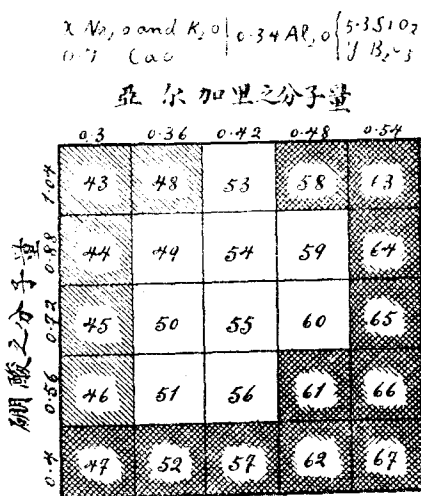 x Na₂O and K₂O | 0.34 Al₂O { 5.3 SiO₂
0.7 CaO { y B₂O₃
亞尔加里之分子量
0.3 0.36 0.42 0.48 0.54
硼酸之分子量
1.04 43 48 53 58 63
0.88 44 49 54 59 64
0.72 45 50 55 60 65
0.56 46 51 56 61 66
0.4 47 52 57 62 67